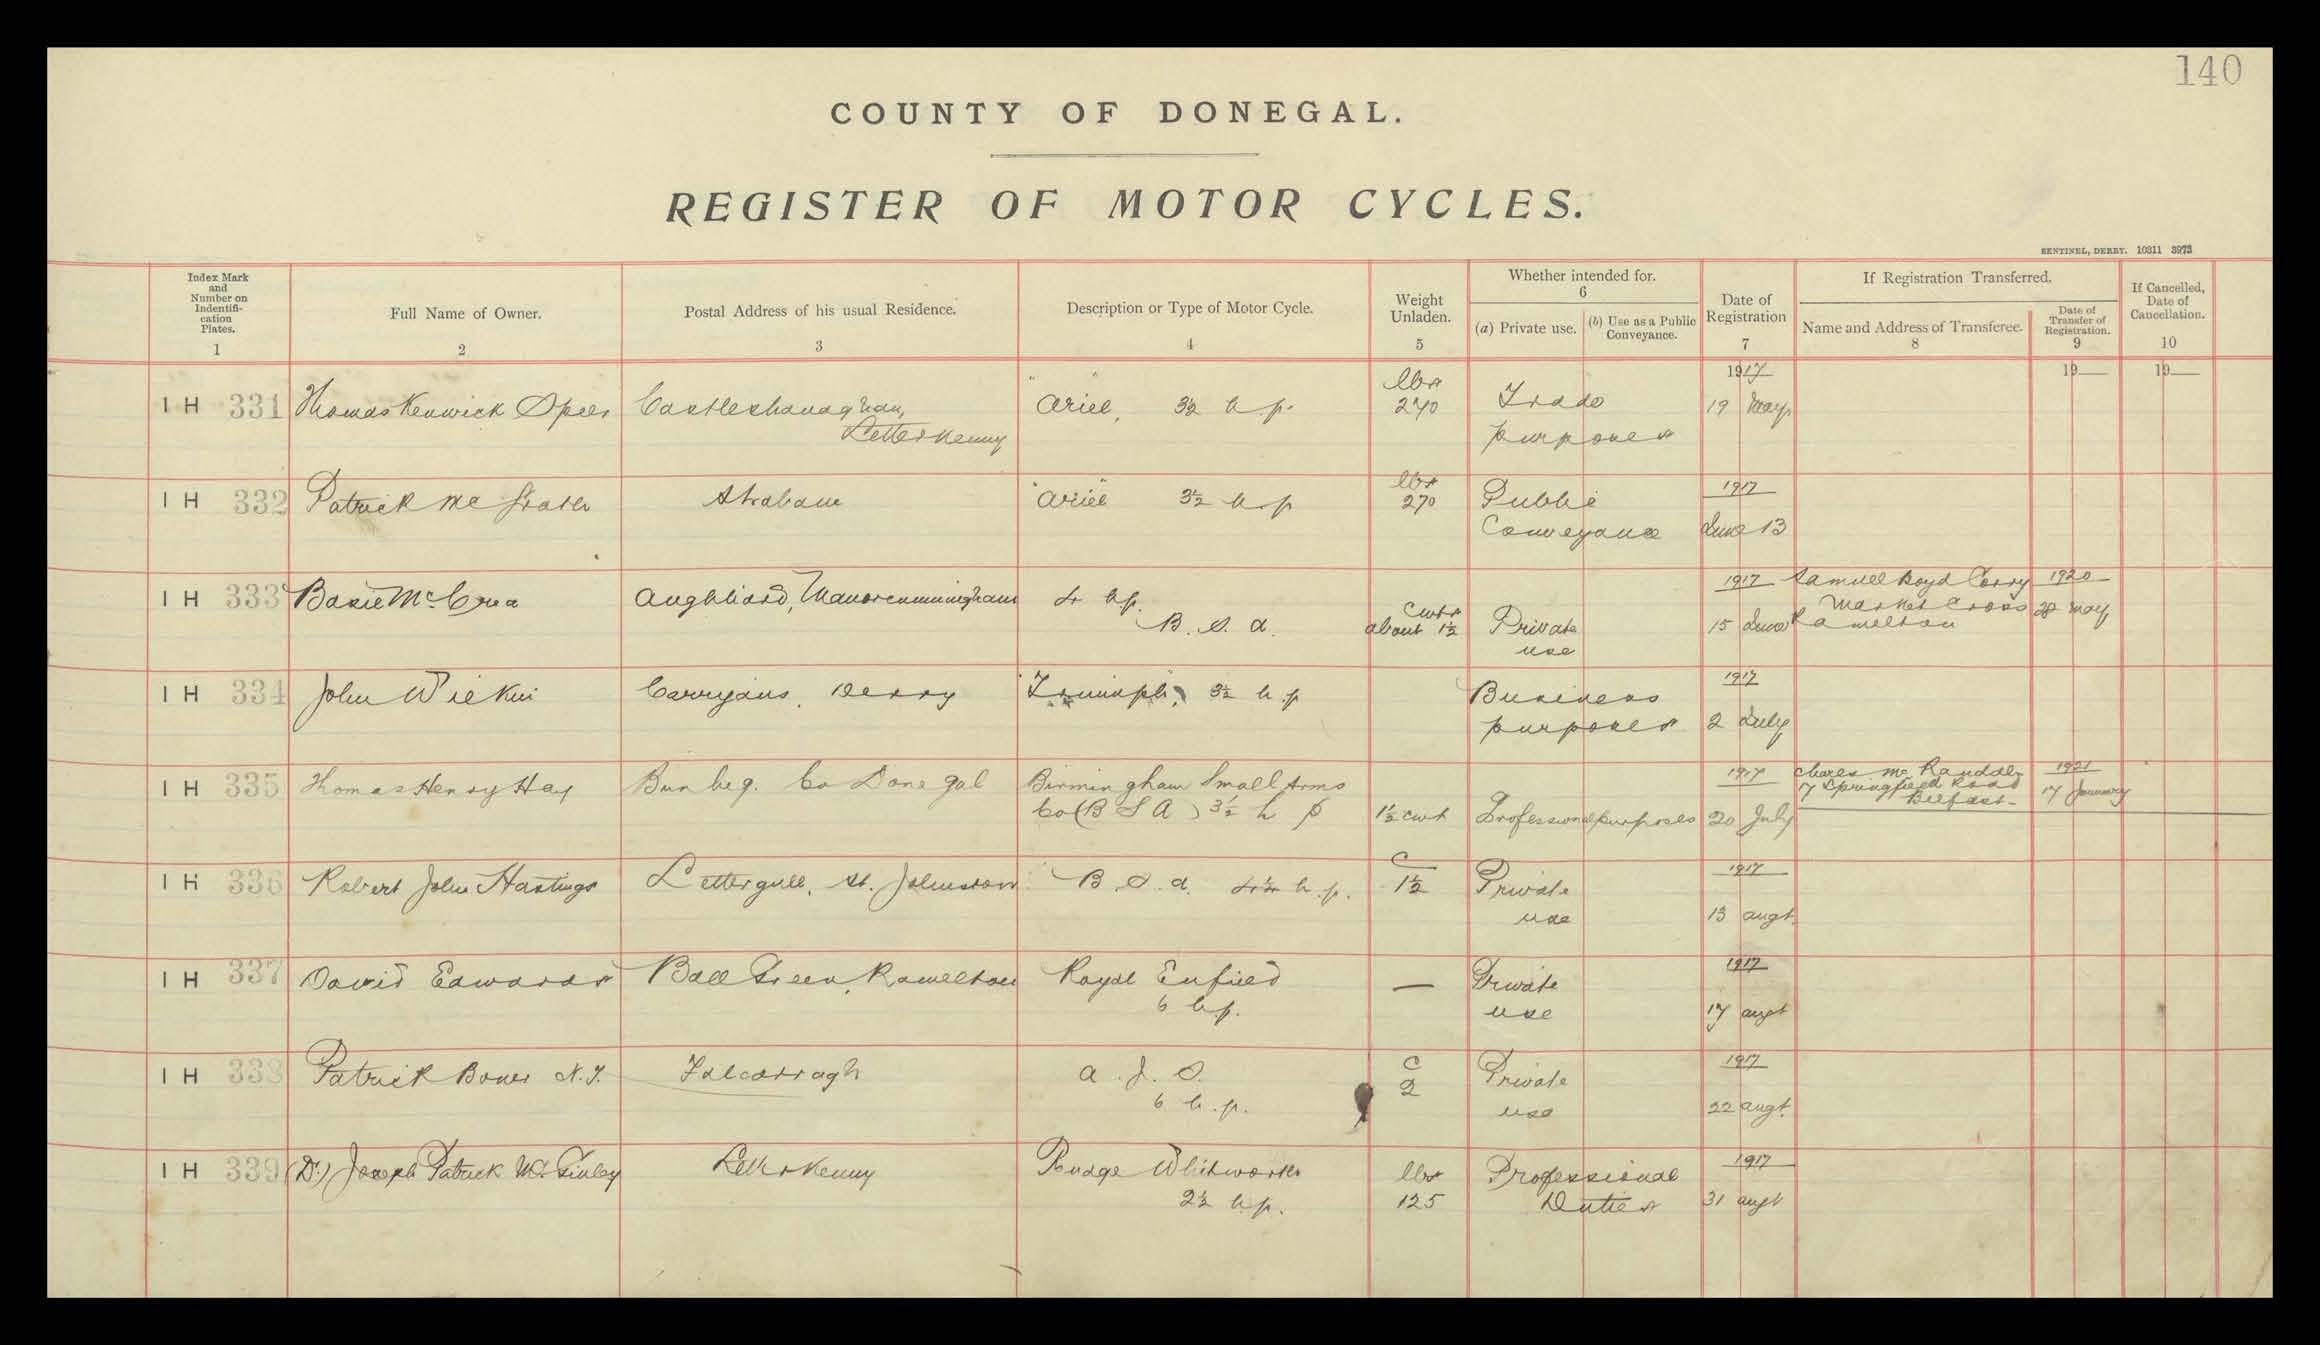 140
COUNTY OF DONEGAL.
REGISTER OF MOTOR CYCLES.
SENTINEL, DERRY. 10311 3973
Index Mark and Number on Indentifi-cation Plates. 1
Full Name of Owner. 2
Postal Address of his usual Residence. 3
Description or Type of Motor Cycle. 4
Weight Unladen. 5
Whether intended for. 6
(a) Private use.
(b) Use as a Public Conveyance.
Date of Registration 7
If Registration Transferred.
Name and Address of Transferee. 8
Date of Transfer of Registration. 9
If Cancelled, Date of Cancellation. 10
1917 19 19
lbs
IH 331 Thomas Kenwick Speer Castleshanaghan, "Ariel", 3½ h.p. 270 Trade 19 May
Letterkenny purposes
lbs 1917
IH 332 Patrick Mc Strabane "Ariel" 3½ h.p 270 Public
Conveyance June 13
1917 Samuel Boyd Corry 1920
IH 333 Basie McCrea Aughliard, Manorcunningham 4 h.p. Market Cross 28 May
B.S.A. cwts about 1½ Private 15 June Ramelton
use
1917
IH 334 John Wilkin Carrigans, Derry "Triumph", 3½ h.p Business
purposes 2 July
IH 335 Thomas Henry Hay Bunbeg. Co Donegal Birmingham Small Arms 1917 Charles Mc 1921
Co (B S A) 3½ h p 1½ cwt Professional purposes 20 July 17 Springfield Road 17 January
Belfast-
C 1917
IH 336 Robert John Hastings Lettergull, St. Johnston B.S.A. 4¼ h.p. 1½ Private
use 13 Augt.
1917
IH 337 David Edwards Ball Green, Ramelton Royal Enfield — Private
6 h.p. use 17 Augt
C 1917
IH 338 Patrick Boner N.T. Falcarragh A.J.S. 2 Private
6 h.p. use 22 Augt.
1917
IH 339 (Dr.) Joseph Patrick McGinley Letterkenny Rudge Whitworth lbs Professional
2½ h.p. 125 Duties 31 Augt